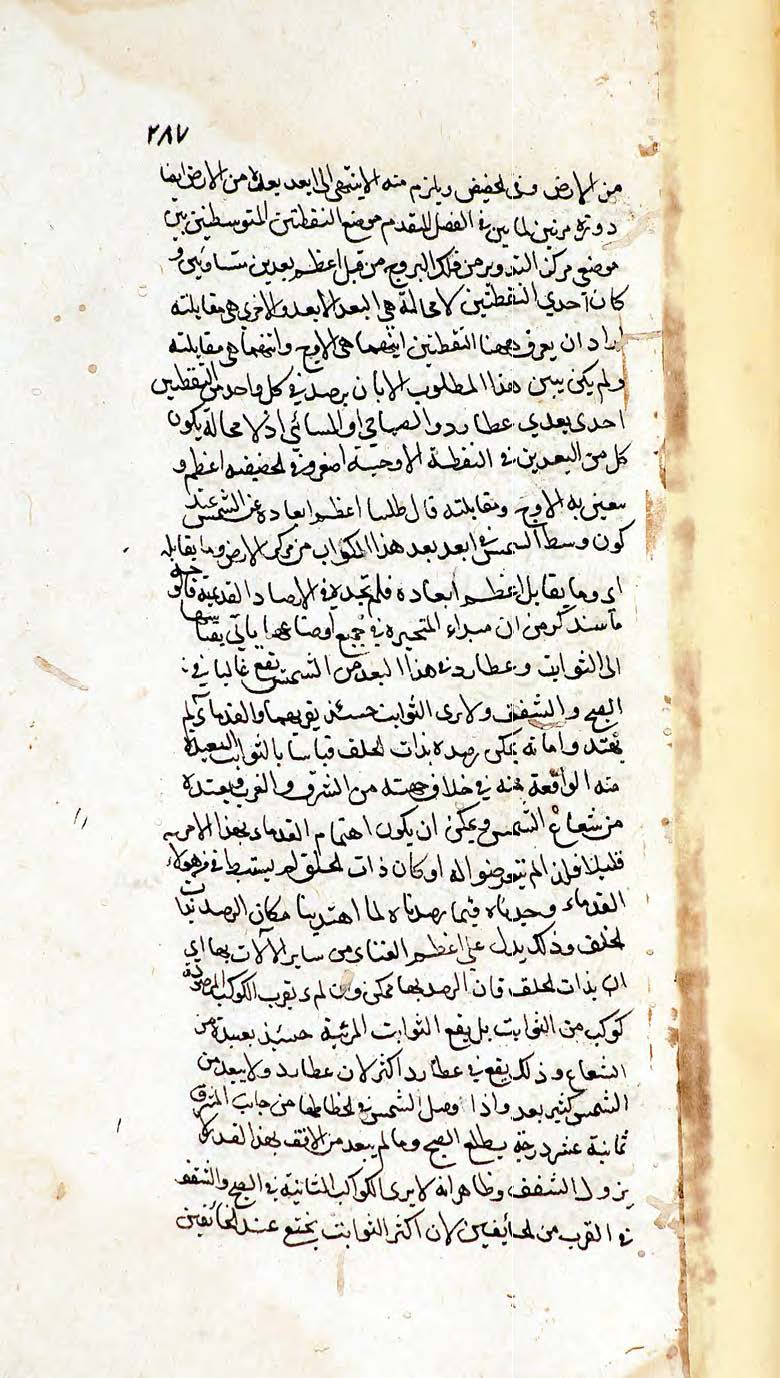 ٢٨٧
من الارض وفى الحضيض ويلزم منه الا ينتهى الى ابعد بعده من الارض ايضا
دورة مرتين لما بين فى الفصل المتقدم موضع النقطتين المتوسطتين بين
موضعى مركز التدوير من فلك البروج من قبل اعظم بعدين متساويين و
كان احدى النقطتين لا محالة هى البعد الابعد والاخرى هى مقابلته
اراد ان يعرف ههنا النقطتين ايتهما هى الاوج وايتهما هى مقابلته
ولم يكن يبين هذا المطلوب الا بان يرصد فى كل واحد من النقطتين
احدى بعدي عطارد والصباحى او المسائى اذ لا محالة يكون
كل من البعدين فى النقطة الاوجية اصغر وفى الحضيضية اعظم و
يعنى به الاوج ومقابلته قال طلبنا اعظم ابعاده عن الشمس عند
كون وسط الشمس فى ابعد بعد هذا الكواكب من مركز الارض وما يقابله
اى وما يقابل اعظم ابعاده فلم نجده فى الارصاد القديمة
ما سنذكر من ان مبداء المتحيرة فى جميع اوضاعها ياتى بقياسها
الى الثوابت وعطارد فى هذا البعد من الشمس يقع غالبا فى
الصبح والشفق ولا يرى الثوابت حينئذ بقربهما والقدماء لم
يعتد وامانه يمكن رصده بذات الحلق قياسا بالثوابت البعيدة
منه الواقعة منه فى خلاف جهته من الشرق والغرب
من شعاع الشمس ويمكن ان يكون اهتمام القدماء بهذا الامر
قليلا فلذا لم يتعرضوا له او كان ذات الحلق لم يستنبط فى هولاء
القدماء وجدناه فيما رصدناه لما اهتدينا مكان الرصد بذات
الحلق وذلك يدل على اعظم الغناء من ساير الالات بها اى
ان بذات الحلق فان الرصد بها ممكن وان لم يقرب الكوكب المرصود
كوكب من الثوابت بل يقع الثوابت المرئية حينئذ بعيدة من
الشعاع وذلك يقع فى عطارد اكثر لان عطارد ولا يبعد من
الشمس كثير بعد واذا وصل الشمس فى انحطاطها من جانب المشرق
ثمانية عشر درجة يطلع الصبح وما لم يبعد من الافق بهذا القدر لا
يزول الشفق وظاهر انه لا يرى الكواكب الثانية فى الصبح والشفق
فى القرب من الخافقين لان اكثر الثوابت يختفى عند الخافقين